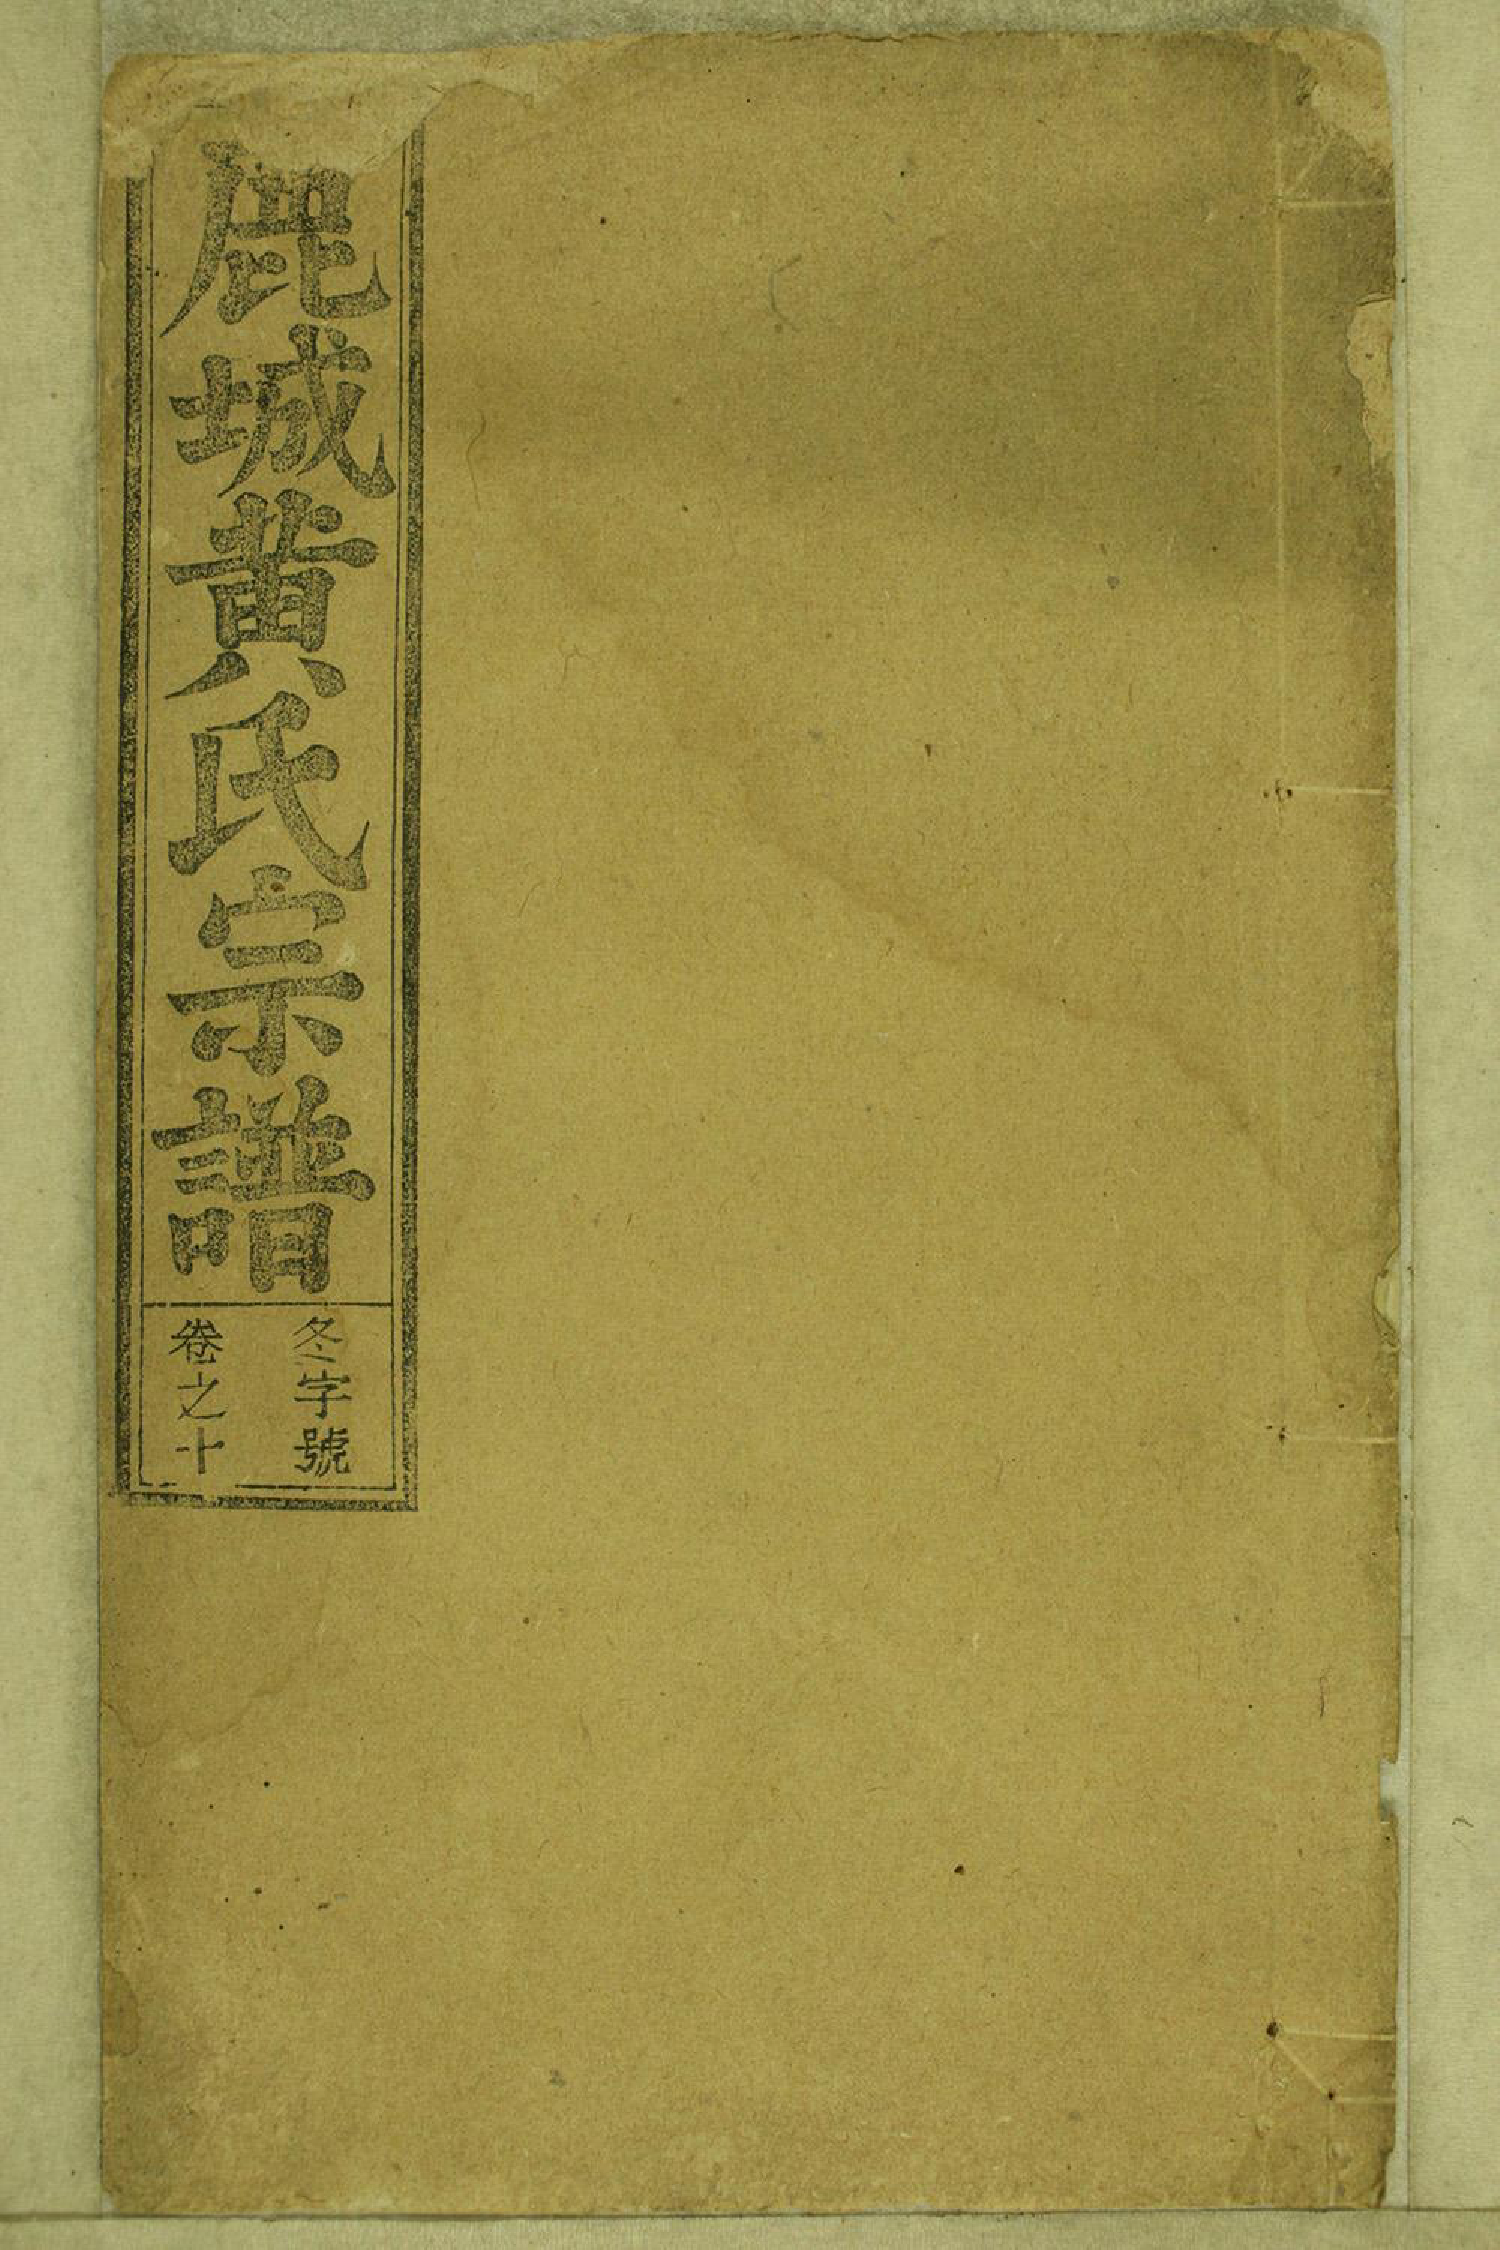 鹿城黃氏宗譜
冬字號
卷之十